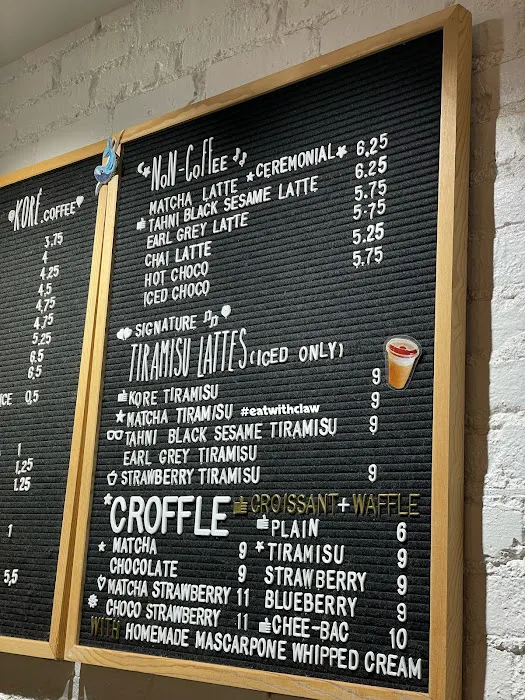 KORÉ.COFFEE
3.75
4
4.25
4.5
4.75
4.75
5.25
6.5
6.5
ICE 0.5
1
1.25
1.25
1
5.5
NON-COFFEE
MATCHA LATTE ★CEREMONIAL★ 6.25
TAHNI BLACK SESAME LATTE 6.25
EARL GREY LATTE 5.75
CHAI LATTE 5.75
HOT CHOCO 5.25
ICED CHOCO 5.75
SIGNATURE
TIRAMISU LATTES (ICED ONLY)
KORE TIRAMISU 9
MATCHA TIRAMISU #eatwithclaw 9
TAHNI BLACK SESAME TIRAMISU 9
EARL GREY TIRAMISU
STRAWBERRY TIRAMISU 9
CROFFLE CROISSANT+WAFFLE
PLAIN 6
MATCHA 9 TIRAMISU 9
CHOCOLATE 9 STRAWBERRY 9
MATCHA STRAWBERRY 11 BLUEBERRY 9
CHOCO STRAWBERRY 11 CHEE-BAC 10
WITH HOMEMADE MASCARPONE WHIPPED CREAM